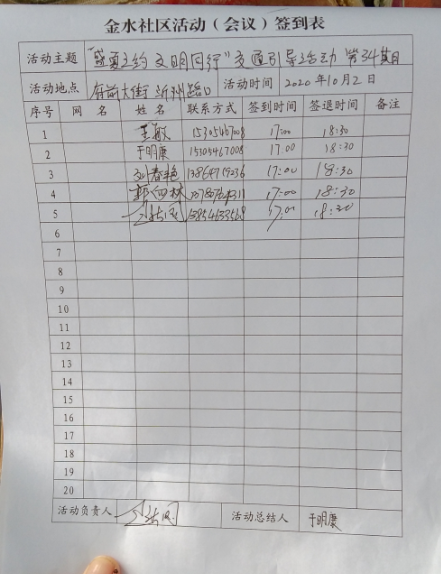 金水社区活动（会议）签到表
活动主题 文明同行"交通引导活动 第34期
活动地点 府前大街 路口 活动时间 2020年10月2日
序号 网名 姓名 联系方式 签到时间 签退时间 备注
1 王敏 17:00 18:30
2 于明康 15305467008 17:00 18:30
3 刘春艳 13864719236 17:00 18:30
4 郭四林 17:00 18:30
5 17:00 18:30
6
7
8
9
10
11
12
13
14
15
16
17
18
19
20
活动负责人 活动总结人 于明康